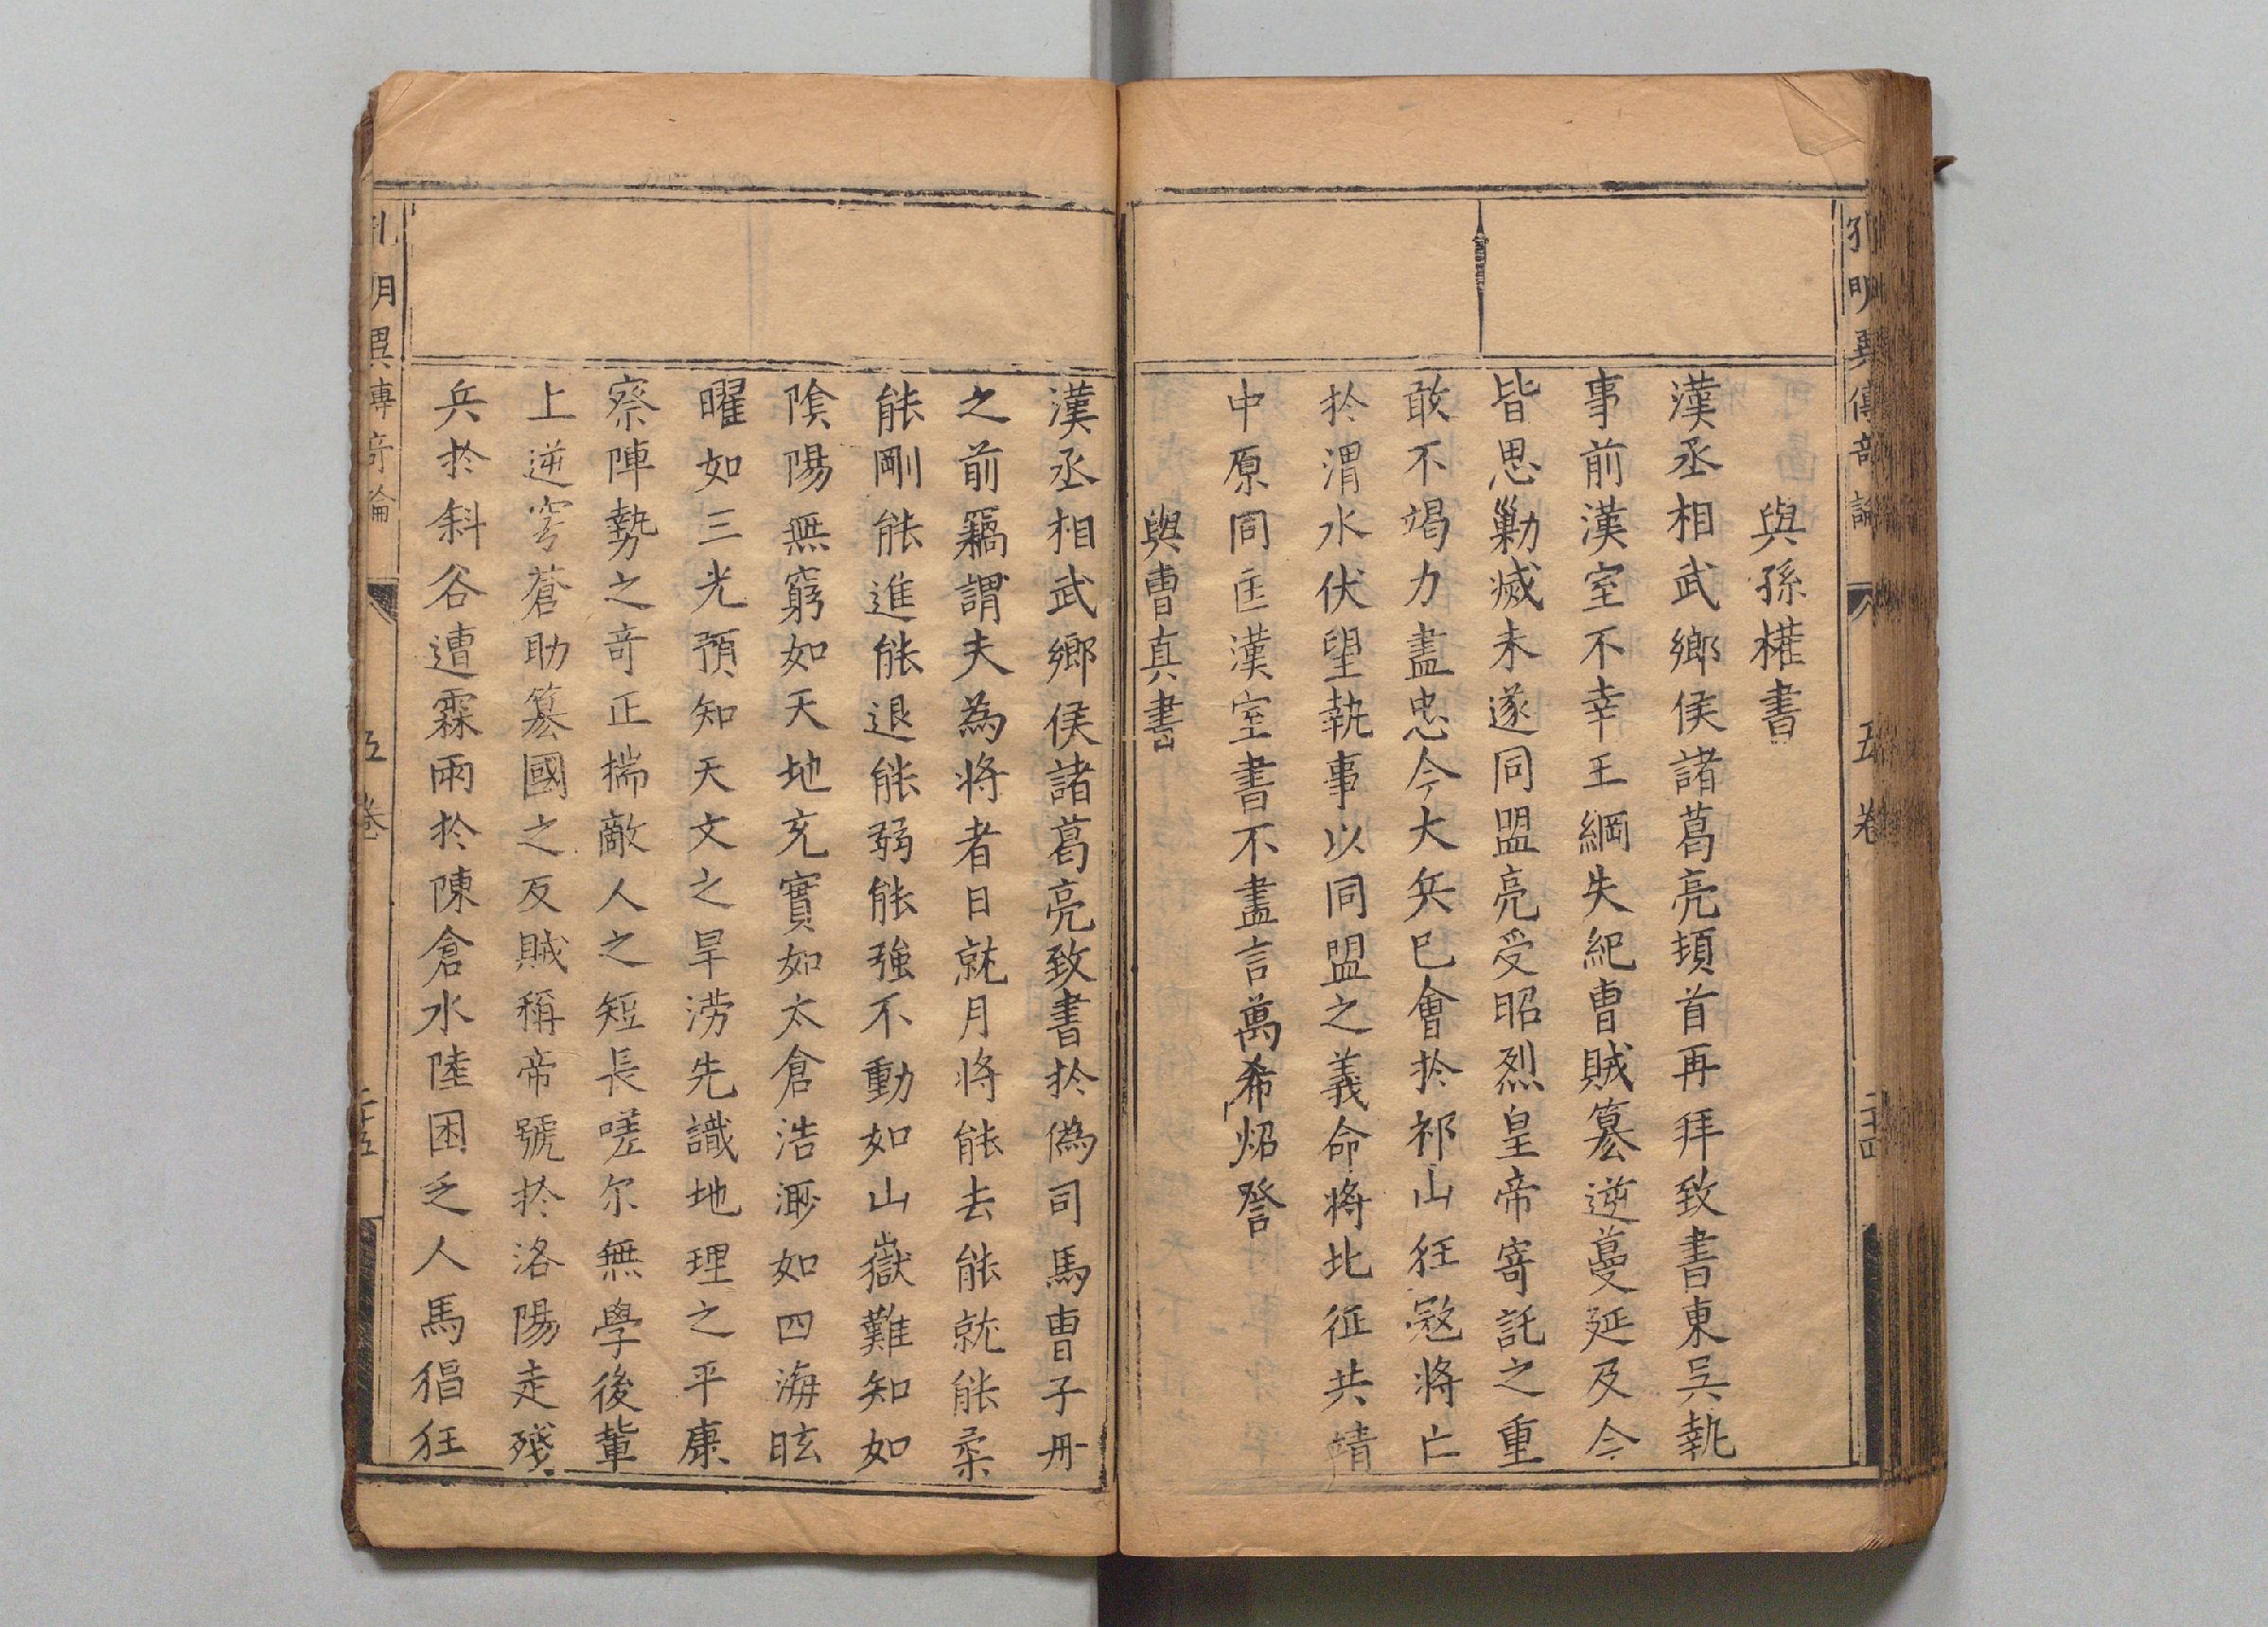 與孫權書
漢丞相武鄉侯諸葛亮頓首再拜致書東吳執
事前漢室不幸王綱失紀曹賊篡逆蔓延及今
皆思剿滅未遂同盟亮受昭烈皇帝寄託之重
敢不竭力盡忠今大兵已會於祁山狂寇將亡
於渭水伏望執事以同盟之義命將北征共靖
中原同匡漢室書不盡言萬希炤詧
與曹真書
漢丞相武鄉侯諸葛亮致書於偽司馬曹子丹
之前竊謂夫為將者日就月將能去能就能柔
能剛能進能退能弱能強不動如山嶽難知如
陰陽無窮如天地充實如太倉浩渺如四海眩
曜如三光預知天文之旱澇先識地理之平康
察陣勢之奇正揣敵人之短長嗟尔無學後輩
上逆穹蒼助篡國之反賊稱帝號於洛陽走殘
兵於斜谷遭霖雨於陳倉水陸困乏人馬猖狂
孔明異傳奇論
五卷
二十五